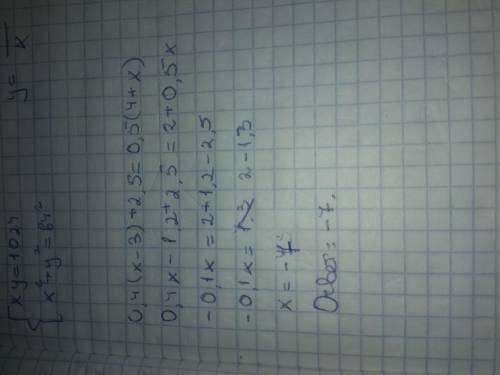 xy=1024
x²+y²=64²
y= — x
0,4(x-3)+2,5=0,5(4+x)
0,4x-1,2+2,5=2+0,5x
-0,1x=2+1,2-2,5
-0,1x= 2-1,3
x=-7
Ответ: -7.